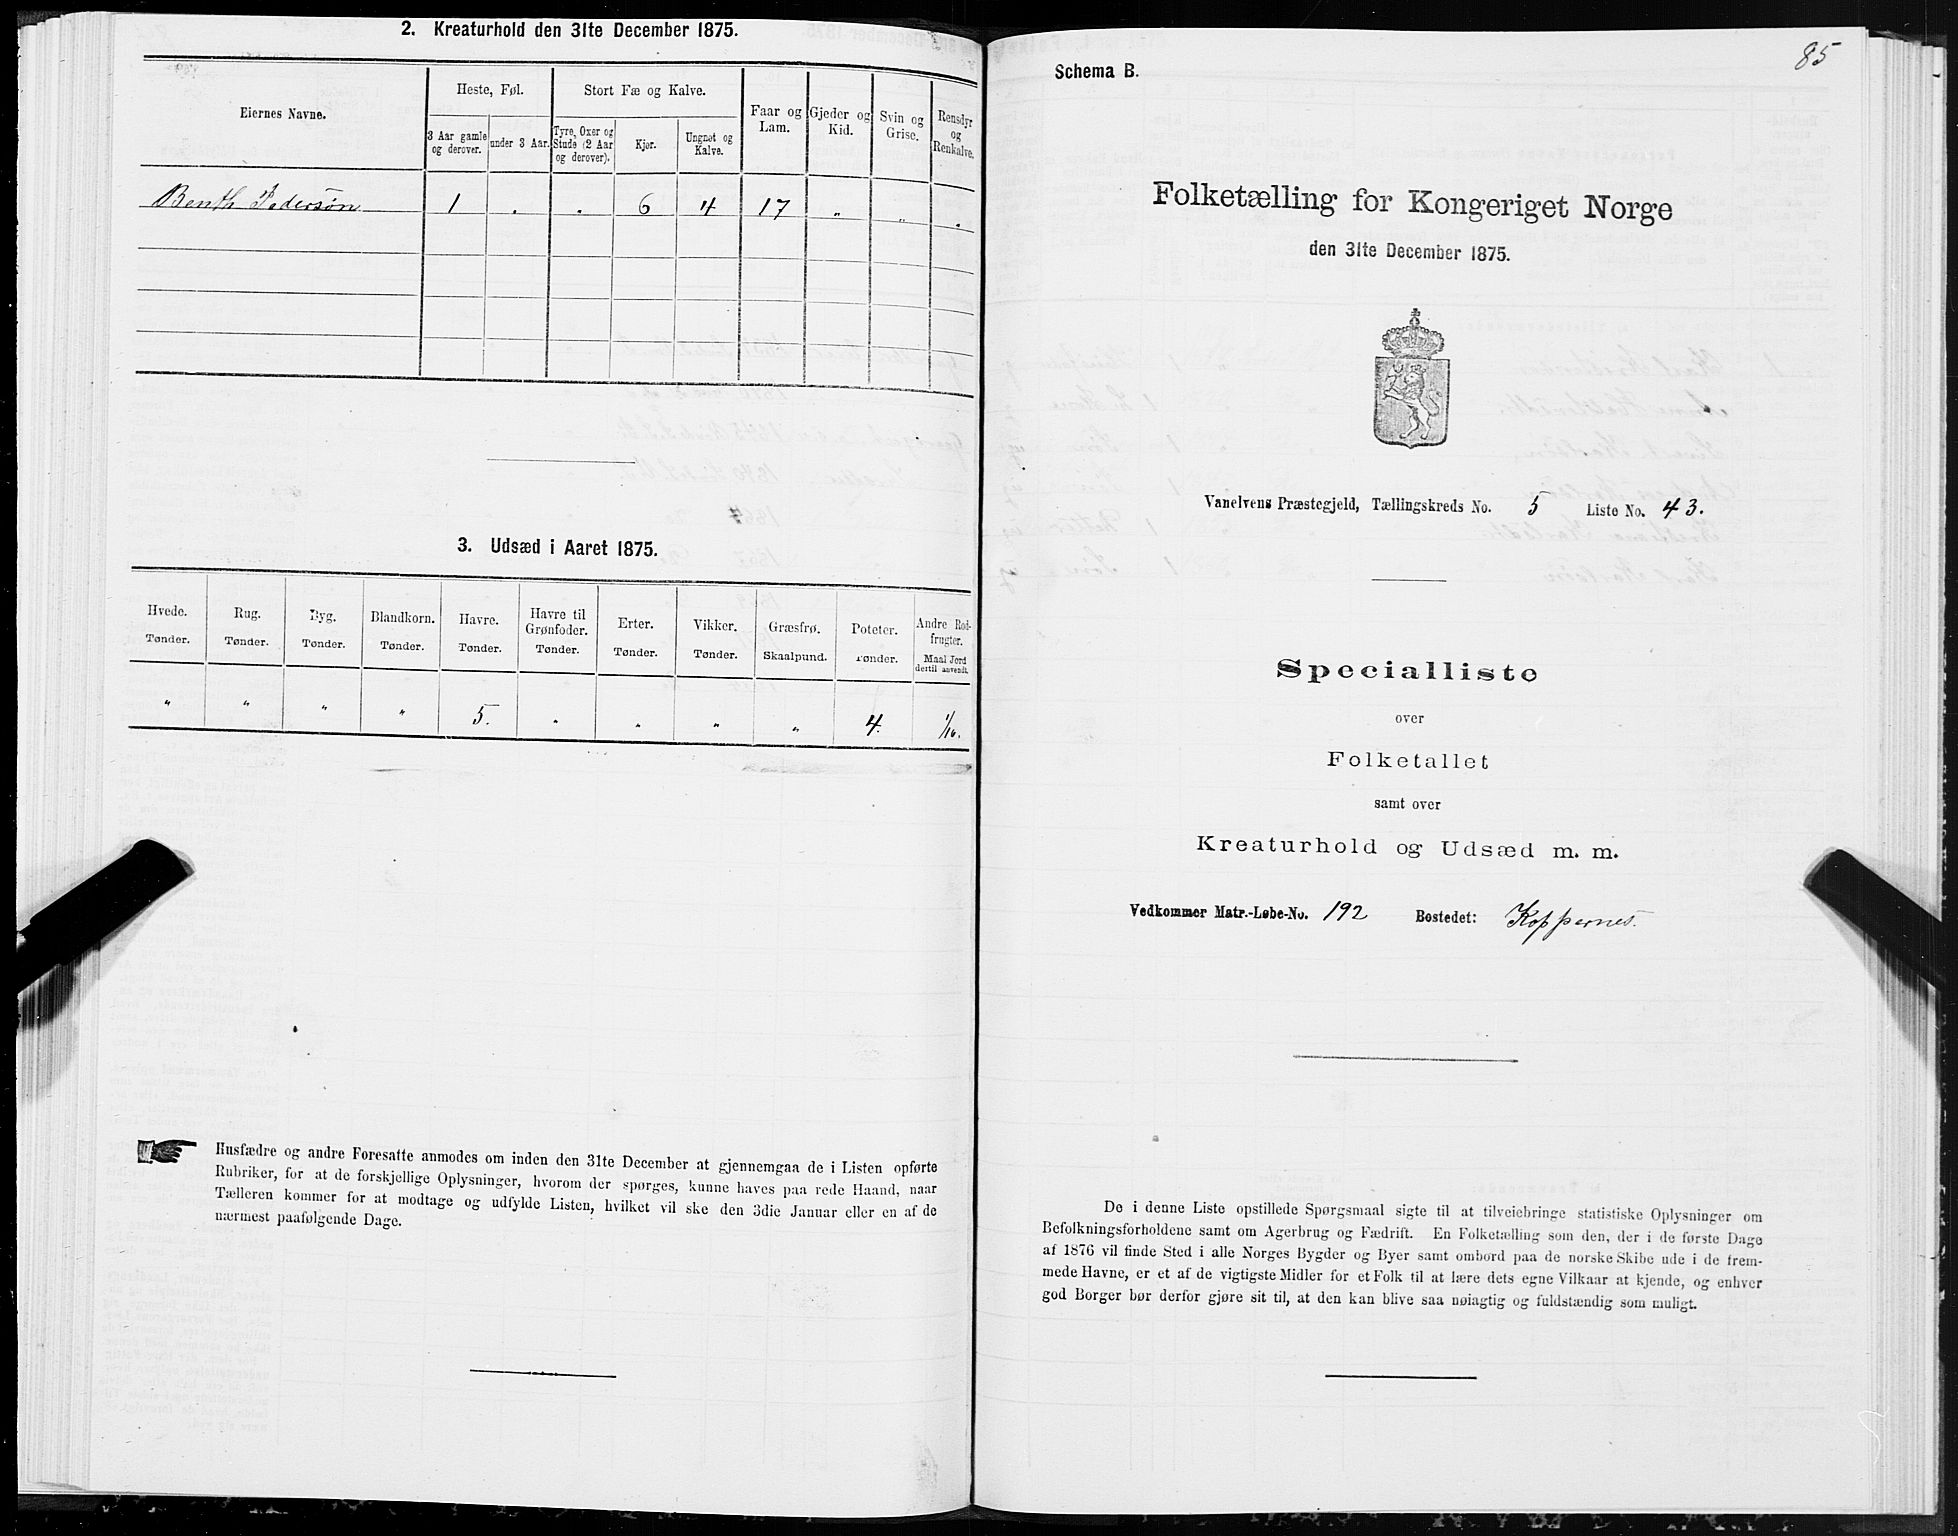 2. Kreaturhold den 31te December 1875.
Eiernes Navne.
Heste, Føl.
Stort Fæ og Kalve.
Faar og Lam.
Gjeder og Kid.
Svin og Grise.
Rensdyr og Renkalve.
3 Aar gamle og derover.
under 3 Aar.
Tyre, Oxer og Stude (2 Aar og derover).
Kjør.
Ungnøt og Kalve.
Benth Pedersøn 1 „ „ 6 4 17 „ „ „
3. Udsæd i Aaret 1875.
Hvede. Rug. Byg. Blandkorn. Havre. Havre til Grønfoder. Erter. Vikker. Græsfrø. Poteter. Andre Rodfrugter.
Tønder. Tønder. Tønder. Tønder. Tønder. Tønder. Tønder. Tønder. Skaalpund. Tønder. Maal Jord dertil anvendt.
„ „ „ „ 5. „ „ „ „ 4. 1/16.
Husfædre og andre Foresatte anmodes om inden den 31te December at gjennemgaa de i Listen opførte
Rubriker, for at de forskjellige Oplysninger, hvorom der spørges, kunne haves paa rede Haand, naar
Tælleren kommer for at modtage og udfylde Listen, hvilket vil ske den 3die Januar eller en af de
nærmest paafølgende Dage.
85
Schema B.
Folketælling for Kongeriget Norge
den 31te December 1875.
Vanelvens Præstegjeld, Tællingskreds No. 5 Liste No. 43.
Specialliste
over
Folketallet
samt over
Kreaturhold og Udsæd m. m.
Vedkommer Matr.-Løbe-No. 192 Bostedet: Koppernes.
De i denne Liste opstillede Spørgsmaal sigte til at tilveiebringe statistiske Oplysninger om
Befolkningsforholdene samt om Agerbrug og Fædrift. En Folketælling som den, der i de første Dage
af 1876 vil finde Sted i alle Norges Bygder og Byer samt ombord paa de norske Skibe ude i de frem-
mede Havne, er et af de vigtigste Midler for et Folk til at lære dets egne Vilkaar at kjende, og enhver
god Borger bør derfor gjøre sit til, at den kan blive saa nøiagtig og fuldstændig som muligt.